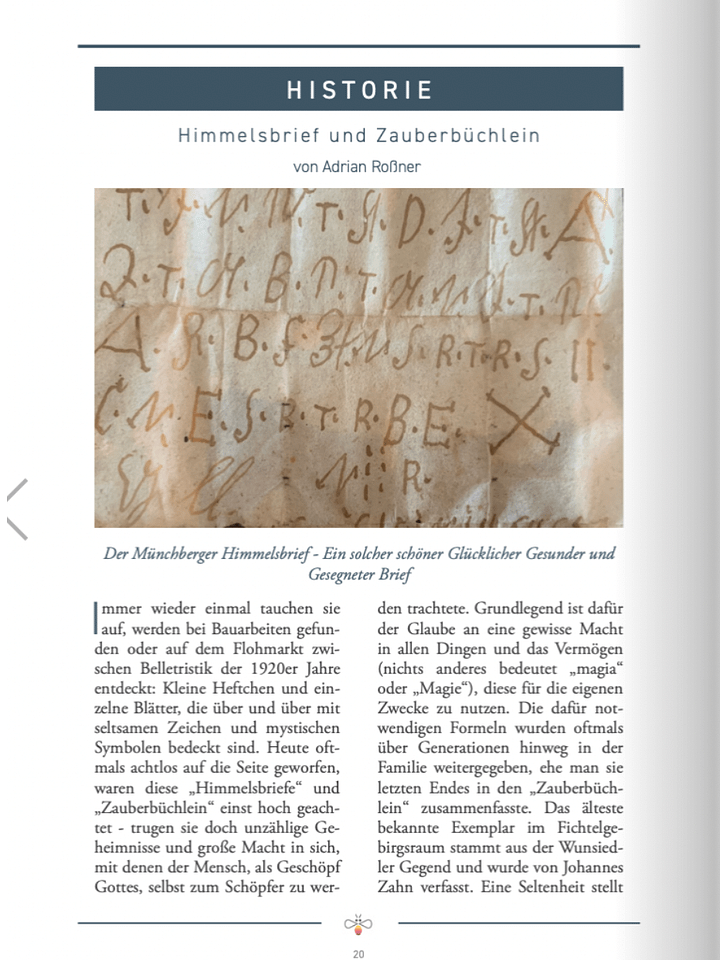 HISTORIE
Himmelsbrief und Zauberbüchlein
von Adrian Roßner
D.
T. B. T.
A. R. B. S. R. T. R. S. II.
E. S. B. T. R. B. E. X
R.
Der Münchberger Himmelsbrief - Ein solcher schöner Glücklicher Gesunder und
Gesegneter Brief
Immer wieder einmal tauchen sie
auf, werden bei Bauarbeiten gefun-
den oder auf dem Flohmarkt zwi-
schen Belletristik der 1920er Jahre
entdeckt: Kleine Heftchen und ein-
zelne Blätter, die über und über mit
seltsamen Zeichen und mystischen
Symbolen bedeckt sind. Heute oft-
mals achtlos auf die Seite geworfen,
waren diese „Himmelsbriefe“ und
„Zauberbüchlein“ einst hoch geach-
tet - trugen sie doch unzählige Ge-
heimnisse und große Macht in sich,
mit denen der Mensch, als Geschöpf
Gottes, selbst zum Schöpfer zu wer-
den trachtete. Grundlegend ist dafür
der Glaube an eine gewisse Macht
in allen Dingen und das Vermögen
(nichts anderes bedeutet „magia“
oder „Magie“), diese für die eigenen
Zwecke zu nutzen. Die dafür not-
wendigen Formeln wurden oftmals
über Generationen hinweg in der
Familie weitergegeben, ehe man sie
letzten Endes in den „Zauberbüch-
lein“ zusammenfasste. Das älteste
bekannte Exemplar im Fichtelge-
birgsraum stammt aus der Wunsied-
ler Gegend und wurde von Johannes
Zahn verfasst. Eine Seltenheit stellt
20